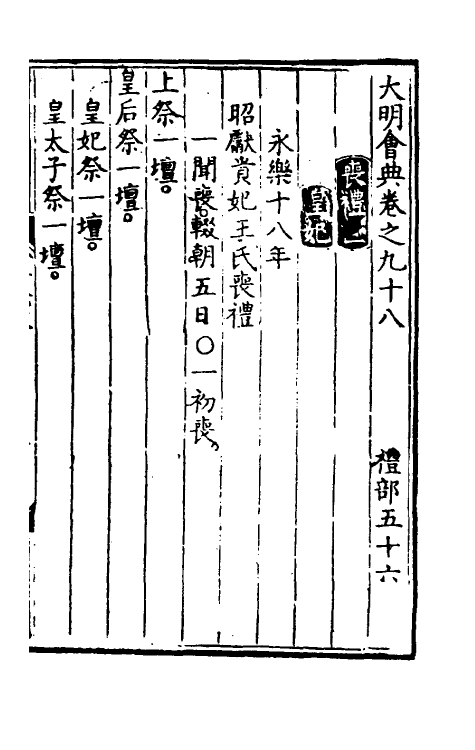 大明會典卷之九十八 禮部五十六
喪禮三
皇妃
永樂十八年
昭獻貴妃王氏喪禮
一聞喪。輟朝五日〇一初喪。
上祭一壇。
皇后祭一壇。
皇妃祭一壇。
皇太子祭一壇。